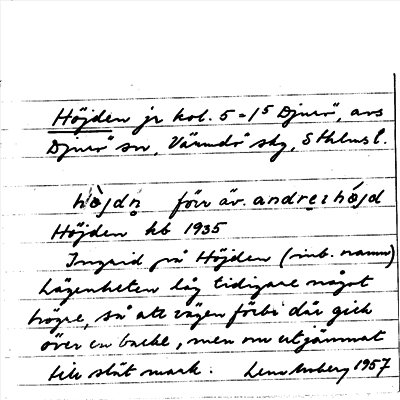 Höjden jr kol. 5-15 Djurö, avs
Djurö sn, Värmdö skg, Sthlms l.
hö̀jdn̥ förr äv. andrezhöjd
Höjden kb 1935
Ingrid på Höjden (inb. namn)
Lägenheten låg tidigare något
högre, så att vägen förbi där gick
över en backe, men nu utjämnat
till slät mark. 1957